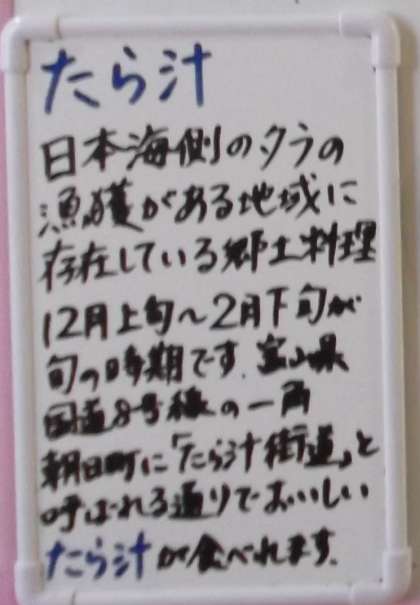 たら汁
日本海側のタラの
漁獲がある地域に
存在している郷土料理
12月上旬～2月下旬が
旬の時期です.富山県
国道8号線の一角
朝日町に「たら汁街道」と
呼ばれる通りでおいしい
たら汁が食べれます.